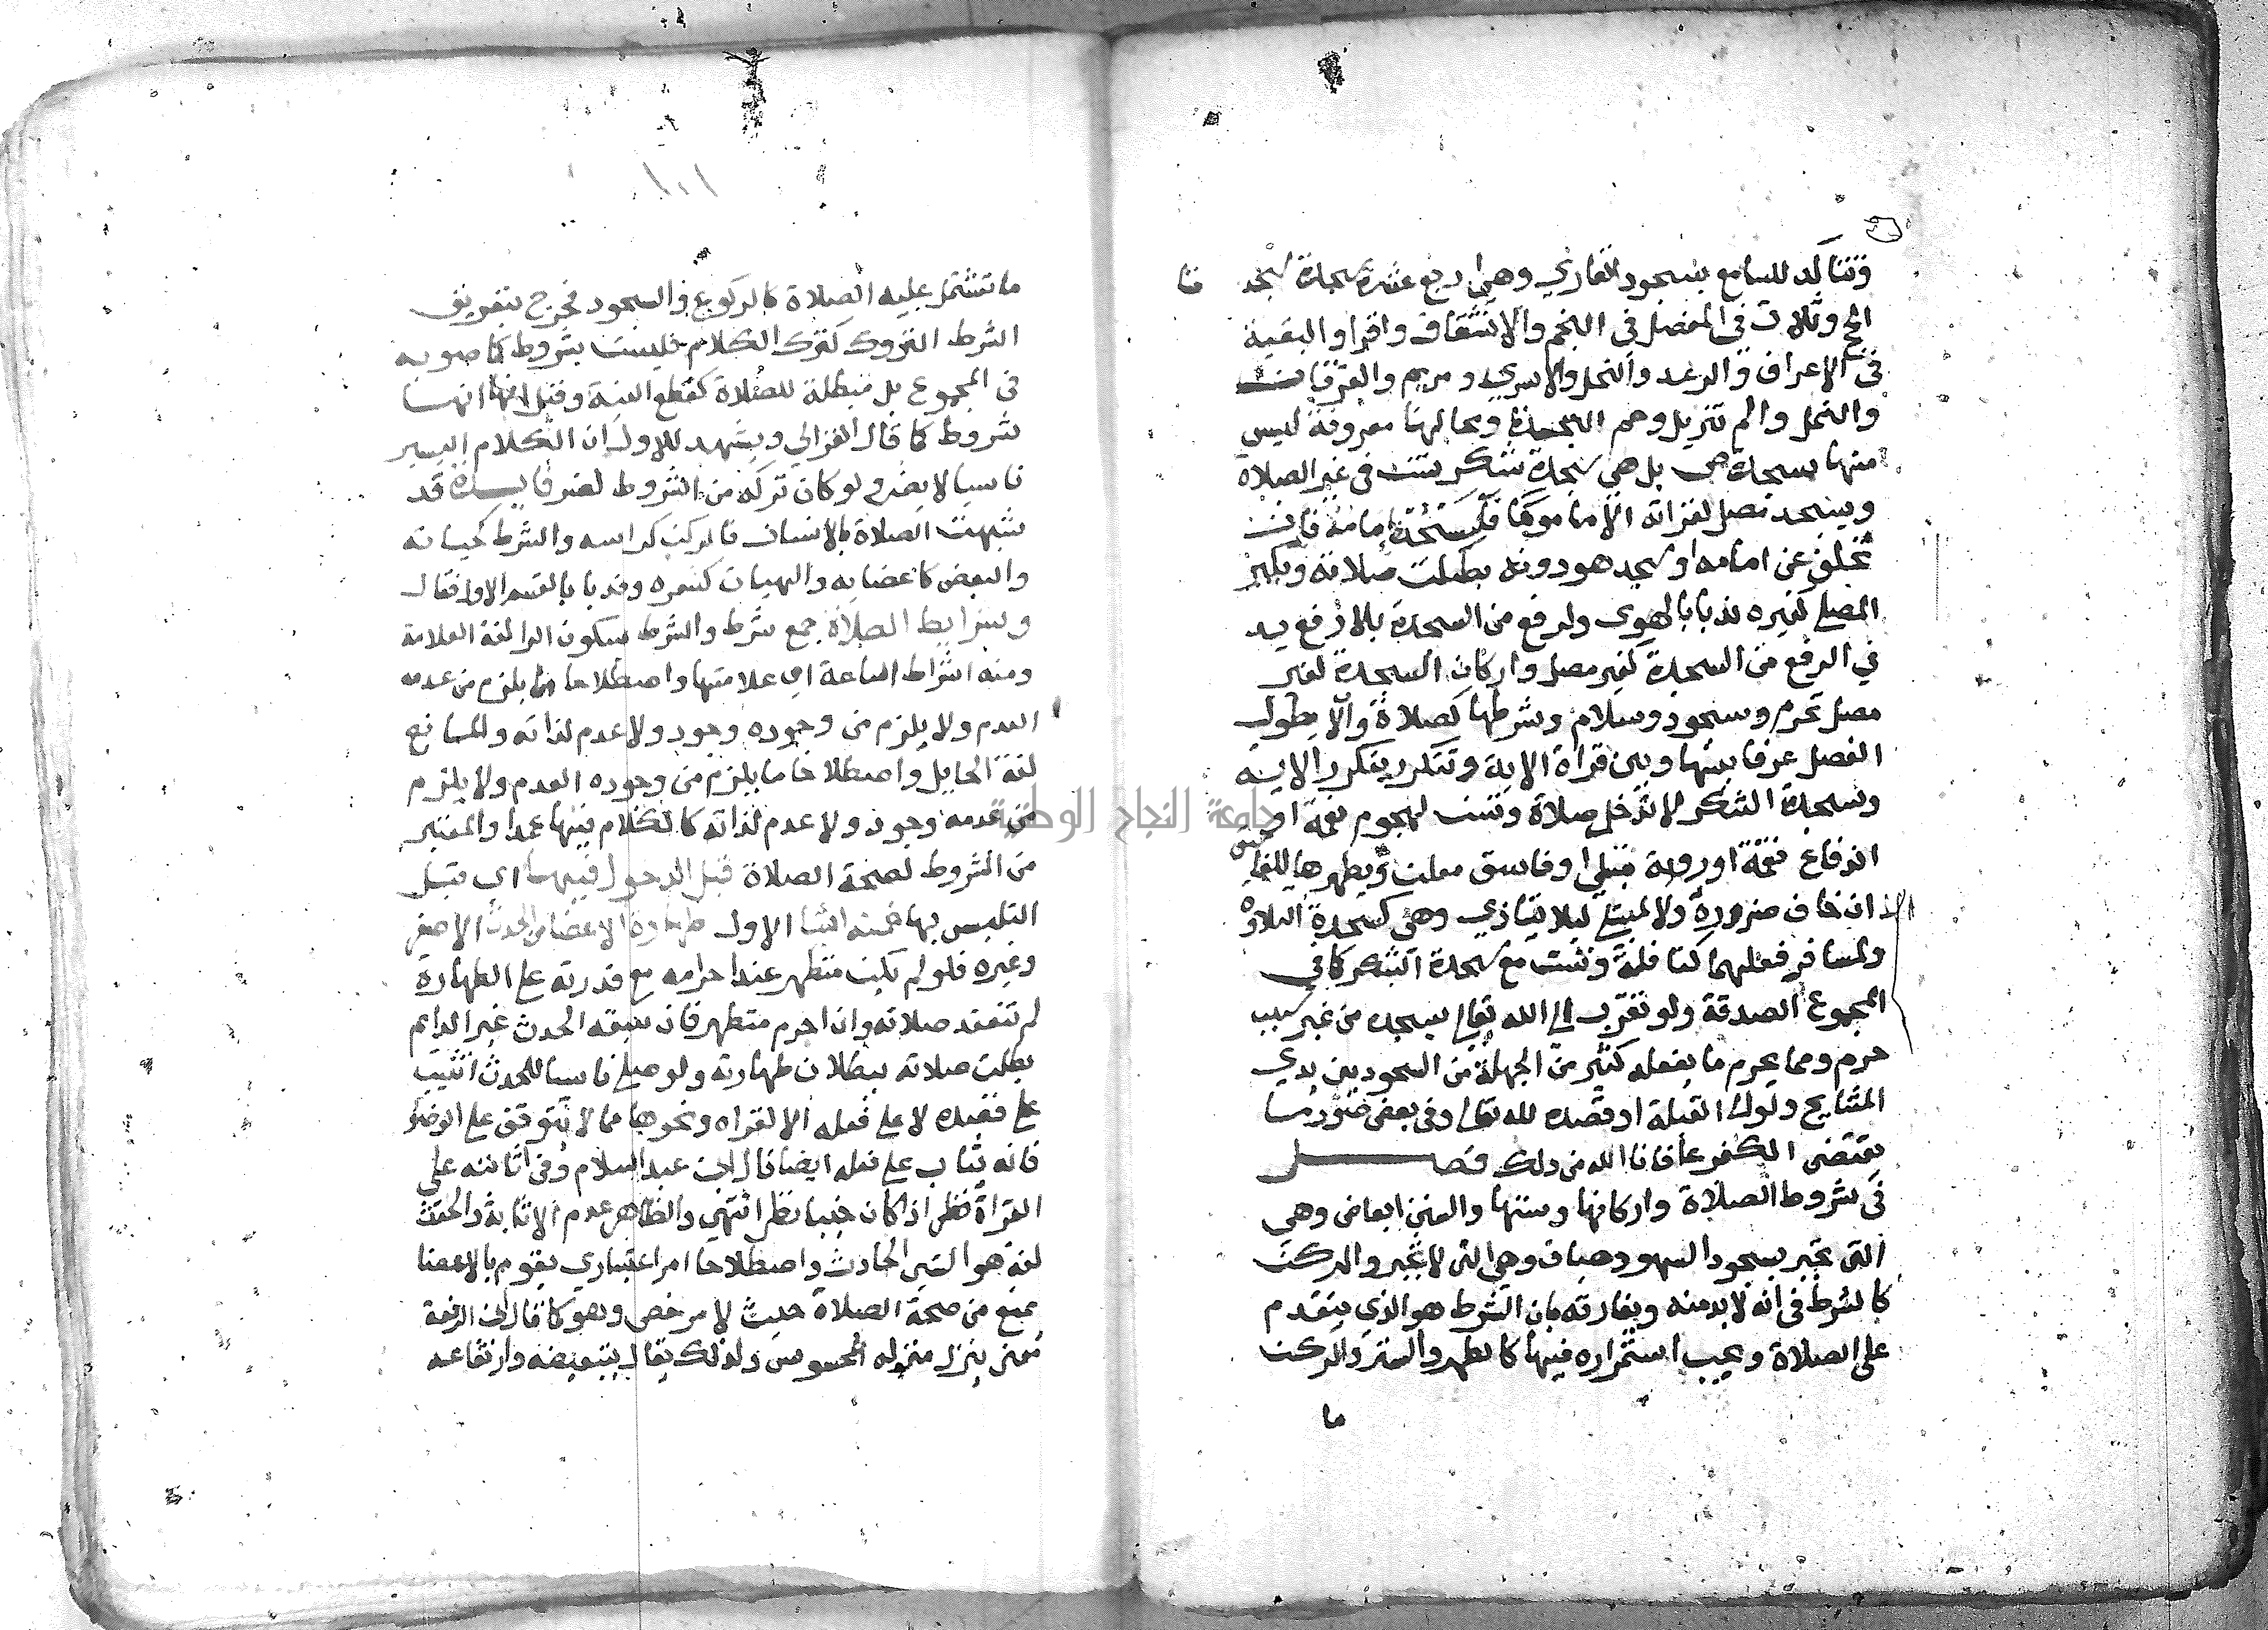 وتتاكد للسامع بسجود القاري وهي اربع عشرة سجدة سجدتا
الحج وثلاث في المفصل في النجم والانشقاق واقرا والبقية
في الاعراف والرعد والنحل والاسري ومريم والفرقان
والنمل والم تنزيل وحم السجدة ومحالها معروفة ليس
منها سجدة ص بل هي سجدة شكر تسن في غير الصلاة
ويسجد مصل لقراته الا ماموما فلسجدة امامه فان
تخلف عن امامه او سجد هو دونه بطلت صلاته ويكبر
المصلي كغيره ندبا بالهوى ولرفع من السجدة بلا رفع يد
في الرفع من السجدة كغير مصل واركان السجدة لغير
مصل تحرم وسجود وسلام وشرطها كصلاة والا يطول
الفصل عرفا بينها وبين قراة الاية وتتكرر بتكرر الاية
وسجدة الشكر لا تدخل صلاة وتسن لهجوم نعمة او
اندفاع نقمة او روية مبتلي او فاسق معلن ويظهرها للفاسق
الا ان خاف ضرورة ولا لمبتلي ليلا يتاذي وهي كسجدة التلاوة
ولمسافر فعلهما كنافلة وتسن مع سجدة الشكر كما في
المجموع الصدقة ولو تقرب الي الله تعالي بسجدة من غير سبب
حرم ومما يحرم ما يفعله كثير من الجهلة من السجود بين يدي
المشايخ ولو الي القبلة او قصده لله تعالي وفي بعض صوره ما
يقتضي الكفر عافانا الله من ذلك فصل
في شروط الصلاة واركانها وسننها والسنن ابعاض وهي
التي تجبر بسجود السهو وهيات وهي التي لا تجبر والركن
كالشرط في انه لا بد منه ويفارقه بان الشرط هو الذي يتقدم
على الصلاة ويجب استمراره فيها كالطهر والستر والركن
ما
ما تشتمل عليه الصلاة كالركوع والسجود فخرج بتعريف
الشرط التروك كترك الكلام فليست بشروط كما صوبه
في المجموع بل مبطلة للصلاة كقطع النية وقيل انها
شروط كما قال الغزالي ويشهد للاول ان الكلام اليسير
ناسيا لا يضر ولو كان تركه من الشروط لضر فايدة قد
شبهت الصلاة بالانسان فالركن كراسه والشرط كحياته
والبعض كاعضايه والهيات كشعره وقد بدا بالقسم الاول فقال
وشرايط الصلاة جمع شرط والشرط بسكون الرا لغة العلامة
ومنه اشراط الساعة اي علامتها واصطلاحا ما يلزم من عدمه
العدم ولا يلزم من وجوده وجود ولا عدم لذاته والمانع
لغة الحايل واصطلاحا ما يلزم من وجوده العدم ولا يلزم
من عدمه وجود ولا عدم لذاته كالكلام فيها عمدا والمعتبر
من الشروط لصحة الصلاة قبل الدخول فيها اي قبل
التلبس بها خمسة اشيا الاول طهارة الاعضا من الحدث الاصغر
وغيره فلو لم يكن متطهر عند احرامه مع قدرته على الطهارة
لم تنعقد صلاته وان احرم متطهر فان سبقه الحدث غير الدايم
بطلت صلاته لبطلان طهارته ولو صلي ناسيا للحدث اثيب
علي قصده لا علي فعله الا القراه ونحوها مما لا يتوقف علي الوضو
فانه يثاب علي فعله ايضا قال ابن عبد السلام وفي اثابته على
القراة نظر اذا كان جنبا نظر انتهي والظاهر عدم الاثابة والحدث
لغة هو الشي الحادث واصطلاحا امر اعتباري يقوم بالاعضا
يمنع من صحة الصلاة حيث لا مرخص وهو كما قال ابن الرفعة
معني ينزل منزله المحسوس ولذلك يقال بتبعيضه وارتفاعه
جامعة النجاح الوطنية